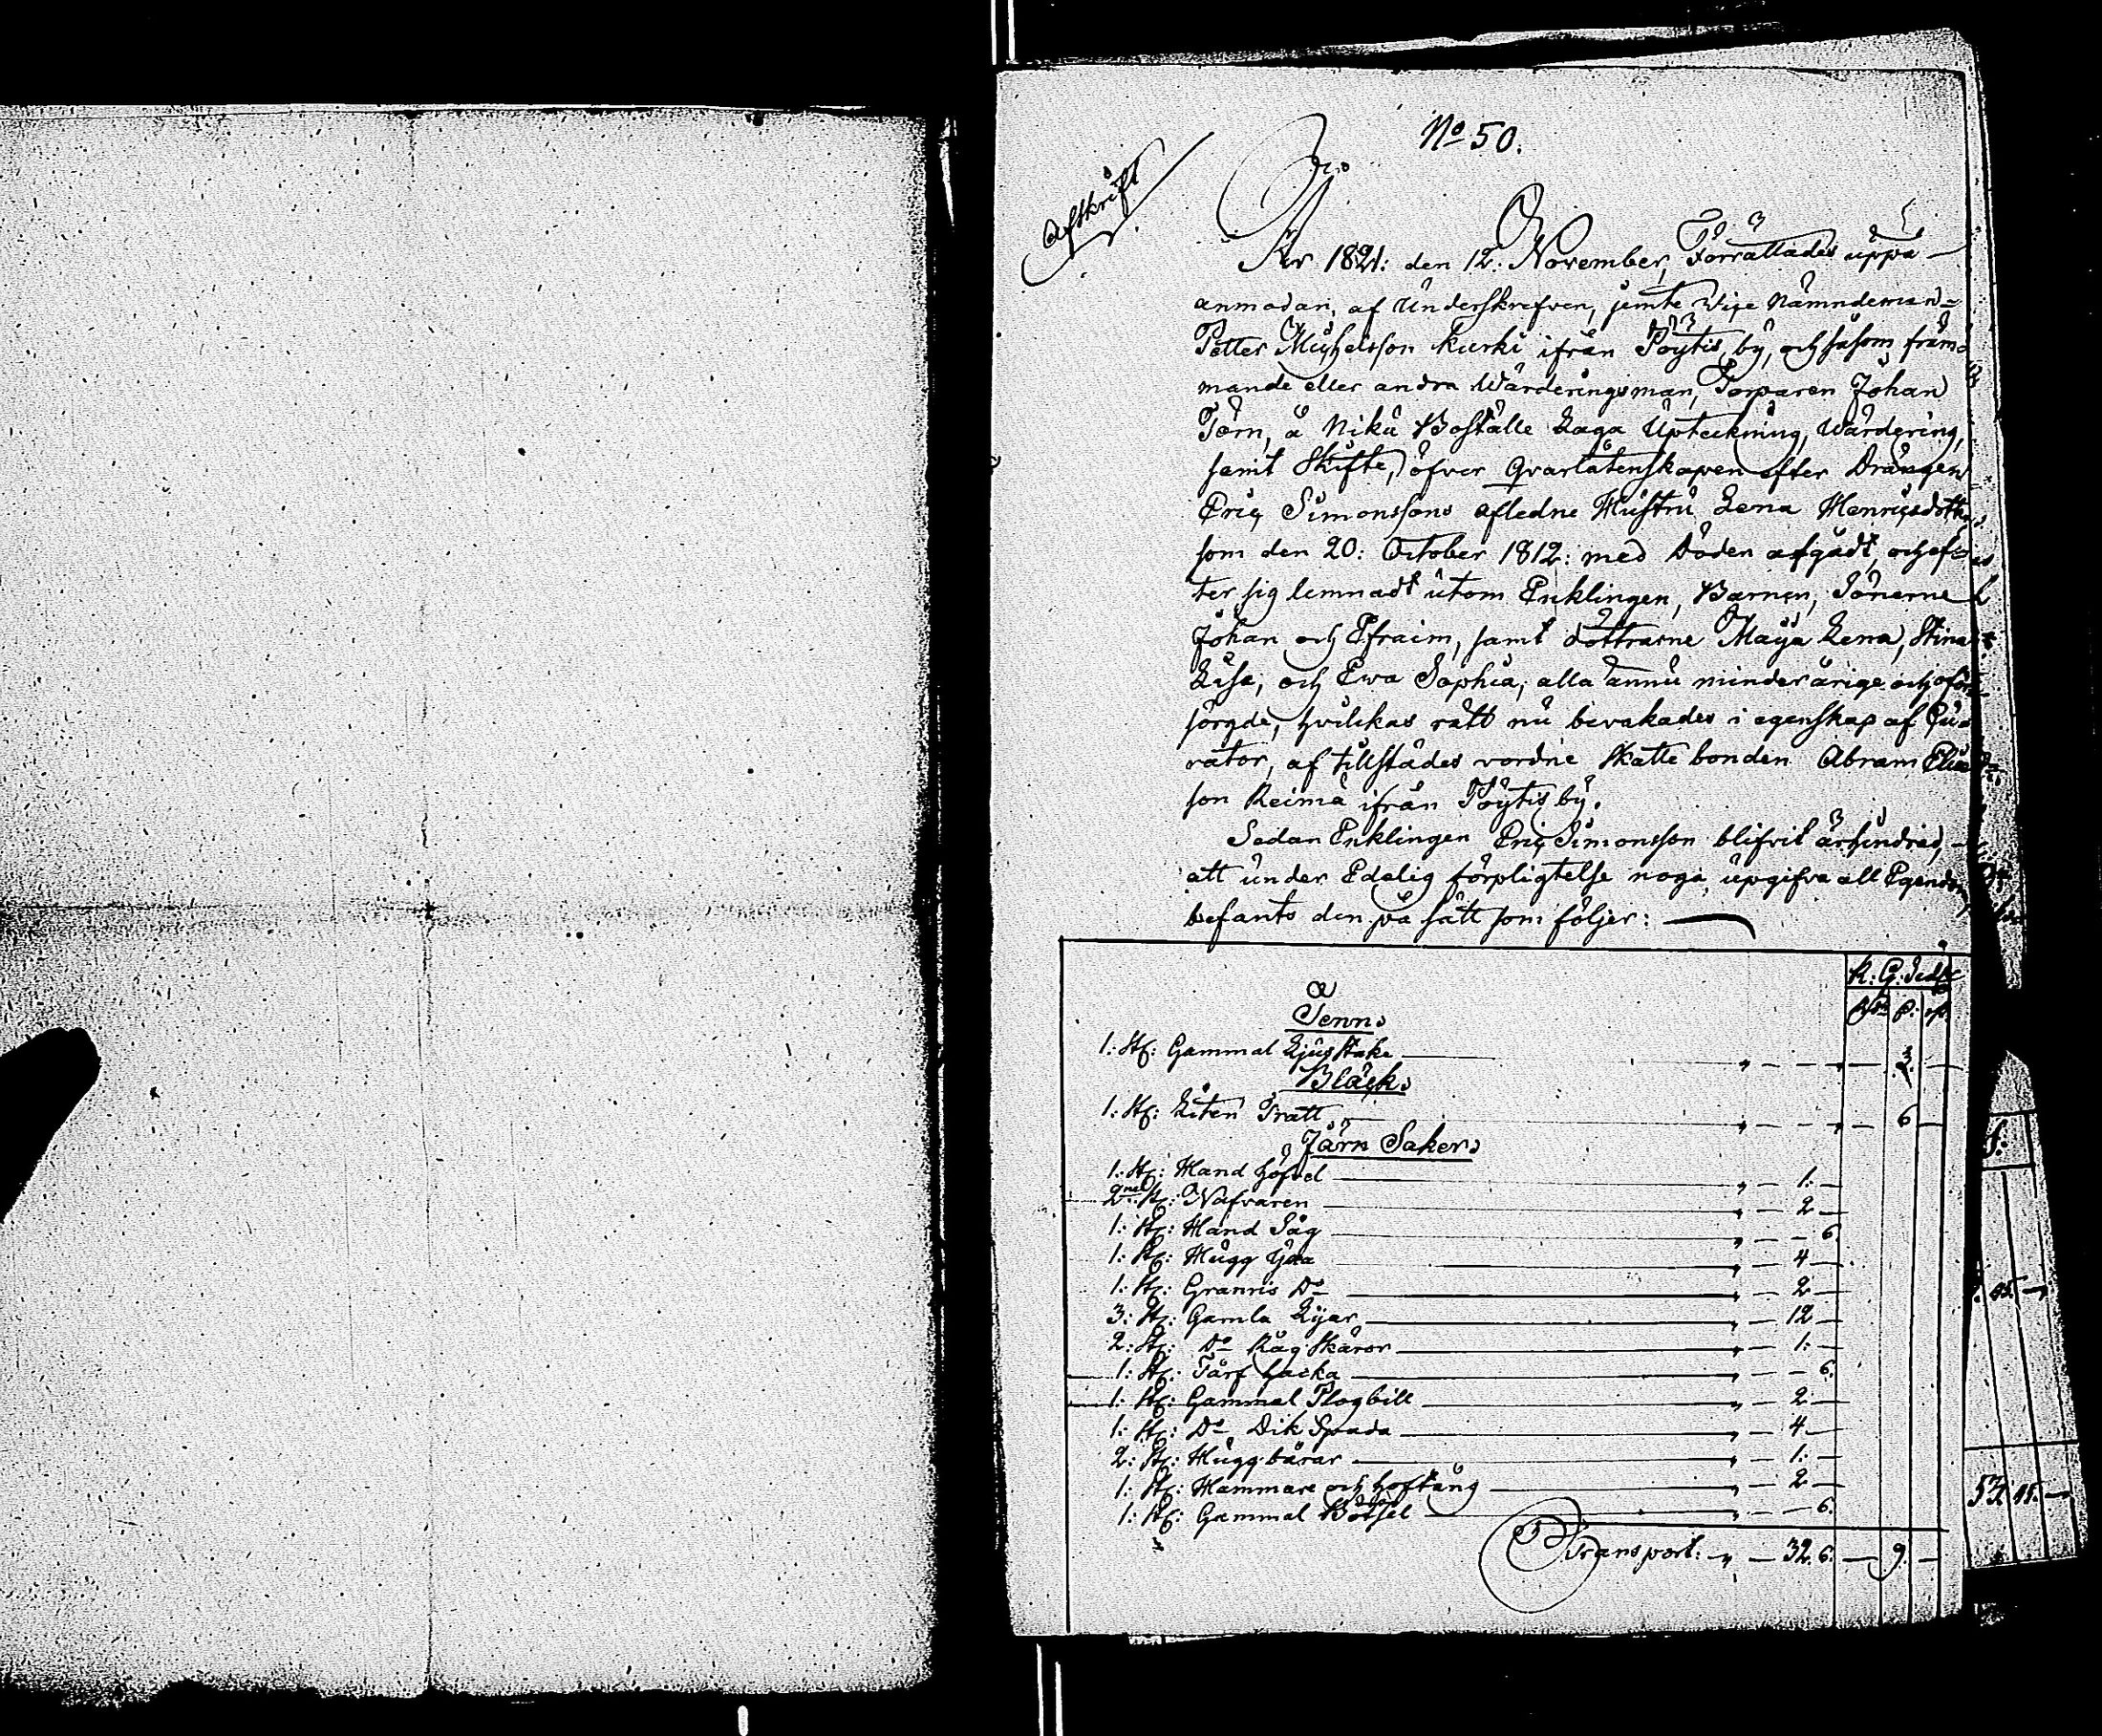 No 50.
Afskrift
År 1821: den 12: November, Förrättades uppå
anmodan, af Underskrefven, jemte Vice Nämndeman
Petter Michelsson Kurki ifrån Pöytis by, och såsom främ-
mande eller andra Wärderingsman, Torparen Johan
Törn, å Niku Boställe Laga Upteckning, Wärdering,
samt Skifte, öfver Qvarlåtenskapen efter Drängen
Eric Simonssons afledne Hustru Lena Henricsdotter
som den 20: October 1812: med Döden afgådt, och ef-
ter sig lemnadt utom Enklingen, Barnen, Sönerne
Johan och Efraim, samt döttrarne Maija Lena, Stina
Lisa, och Ewa Sophia, alla ännu minderårige och oför-
sörgde, hvilkas rätt nu bevakades i egenskap af Cu-
rator, af tillstädes vordne Skatte bonden Abram Elias-
son Reima ifrån Pöytis by.
Sedan Enklingen Eric Simonsson blifvit ärhindrad,
att under Edelig förpligtelse noga upgifva all Egendom
befants den på sätt som följer:
R: G: Sedl:
Tenn
1: St: Gammal Ljusstake — 3
Bläck
1: St: Liten Tratt — 6
Järn Saker
1: St: Hand höfvel — 1:
2ne St: Nafvaren — 2
1: St: Hand Såg — 6
1: St: Hugg Yxa — 4
1: St: Granris Do — 2
3: St: Gamla Lijar — 12
2: St: Do Råg Skäror — 1:
1: St: Tårf hacka — 6.
1: St: Gammal Plogbill — 2
1: St: Do Dik Spada — 4
2: St: Huggbårar — 1:
1: St: Hammare och hoftång — 2
1: St: Gammal Bötsel — 6.
Transport: — 32. 6. — 9. —
53 15. —